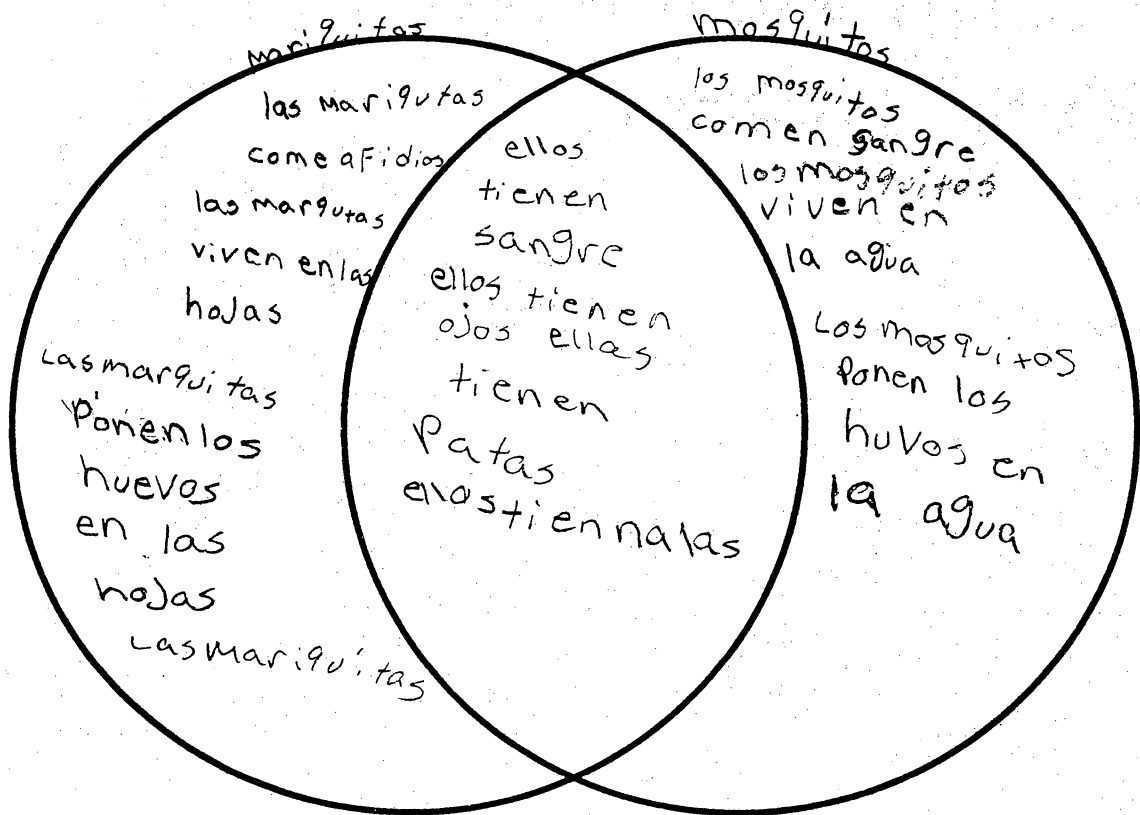 mariquitas
las mariqutas
come afidios
las marqutas
viven en las
hojas
Las marquitas
ponen los
huevos
en las
hojas
Las mariquitas
ellos
tienen
sangre
ellos tienen
ojos ellas
tienen
Patas
ellos tiennalas
mosquitos
los mosquitos
comen sangre
los mosquitos
viven en
la agua
Los mosquitos
Ponen los
huvos en
la agua